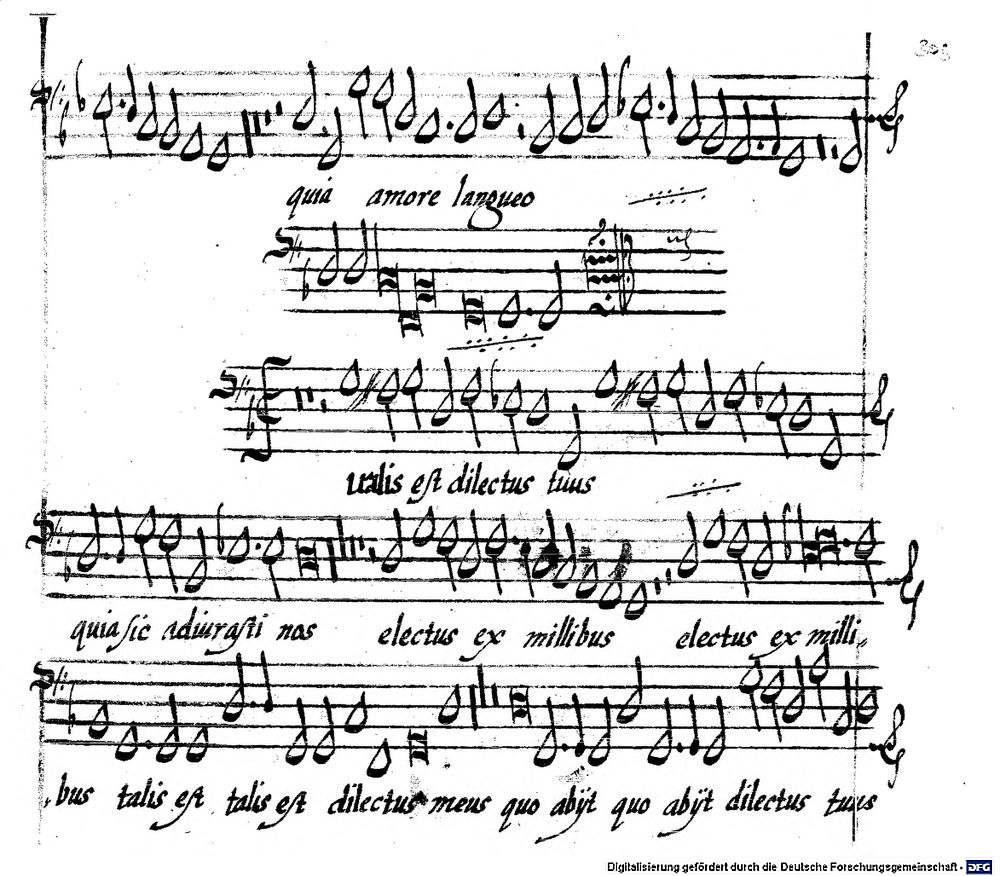 303
quia amore langueo
Ualis est dilectus tuus
quia sic adiurasti nos electus ex millibus electus ex milli,
,bus talis est talis est dilectus meus quo abijt quo abijt dilectus tuus
Digitalisierung gefördert durch die Deutsche Forschungsgemeinschaft - DFG